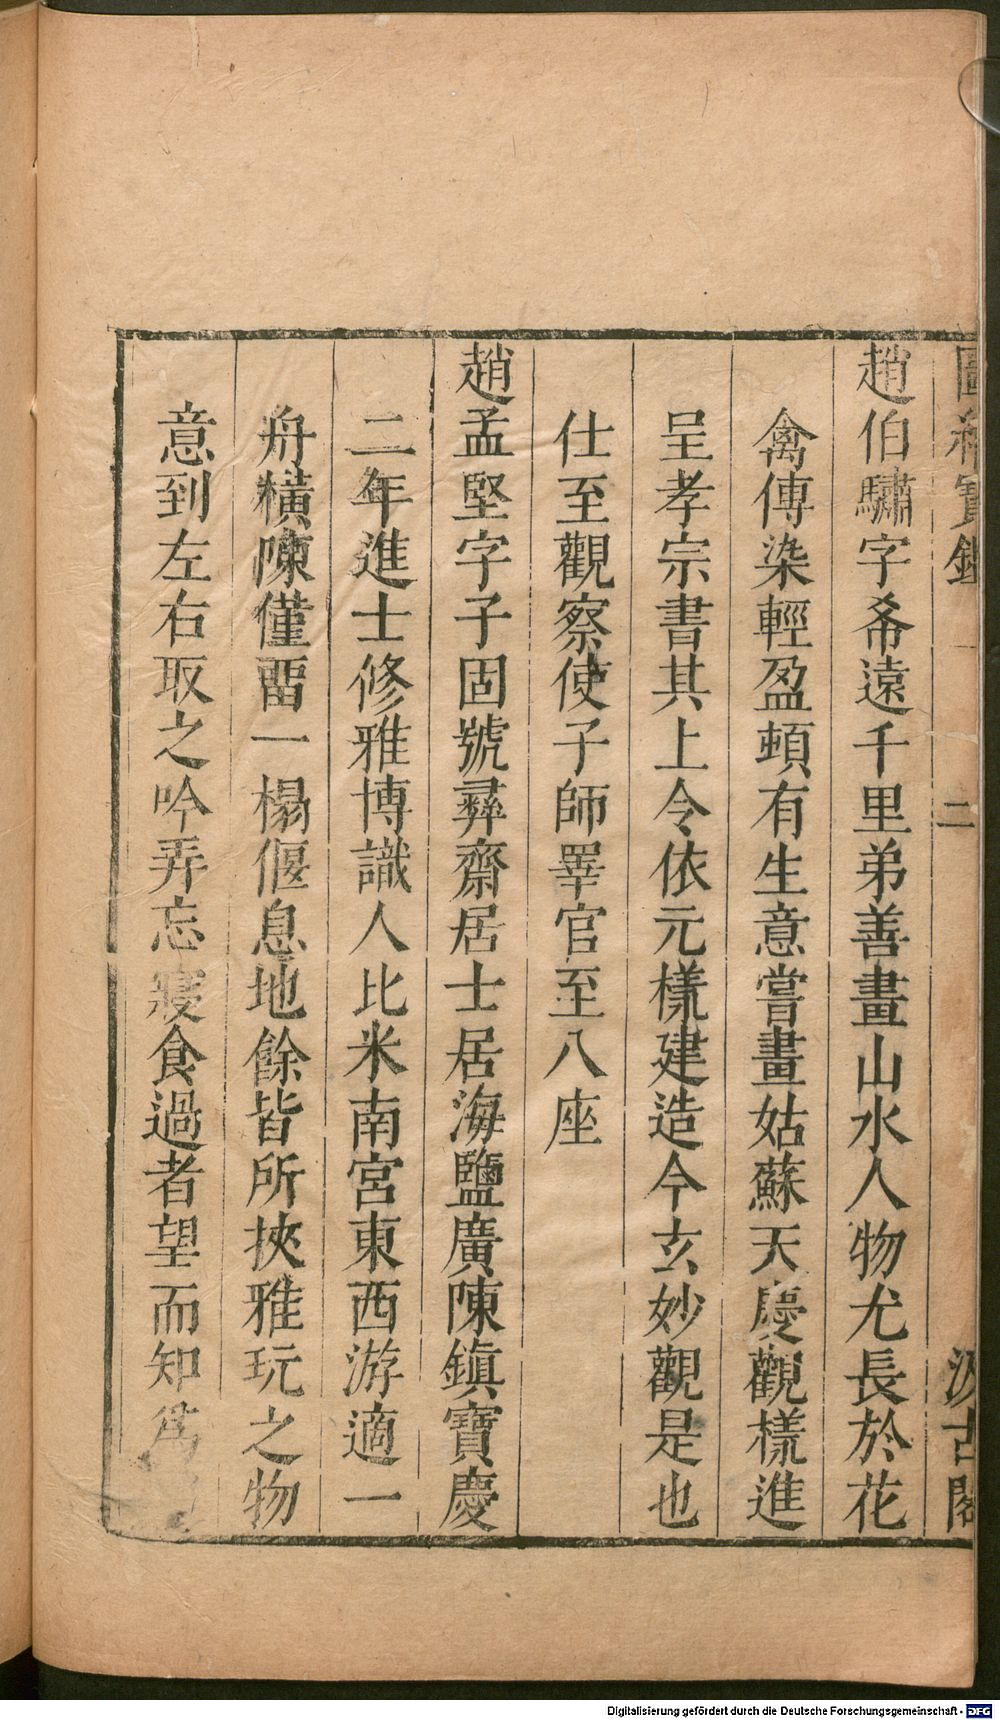 圖繪寶鑑 二 汲古閣
趙伯驌字希遠千里弟善畫山水人物尤長於花
禽傳染輕盈頓有生意嘗畫姑蘇天慶觀樣進
呈孝宗書其上令依元樣建造今玄妙觀是也
仕至觀察使子師睪官至八座
趙孟堅字子固號彛齋居士居海鹽廣陳鎮寶慶
二年進士修雅博識人比米南宮東西游適一
舟橫陳僅畱一榻偃息地餘皆所挾雅玩之物
意到左右取之吟弄忘寢食過者望而知爲
Digitalisierung gefördert durch die Deutsche Forschungsgemeinschaft - DFG